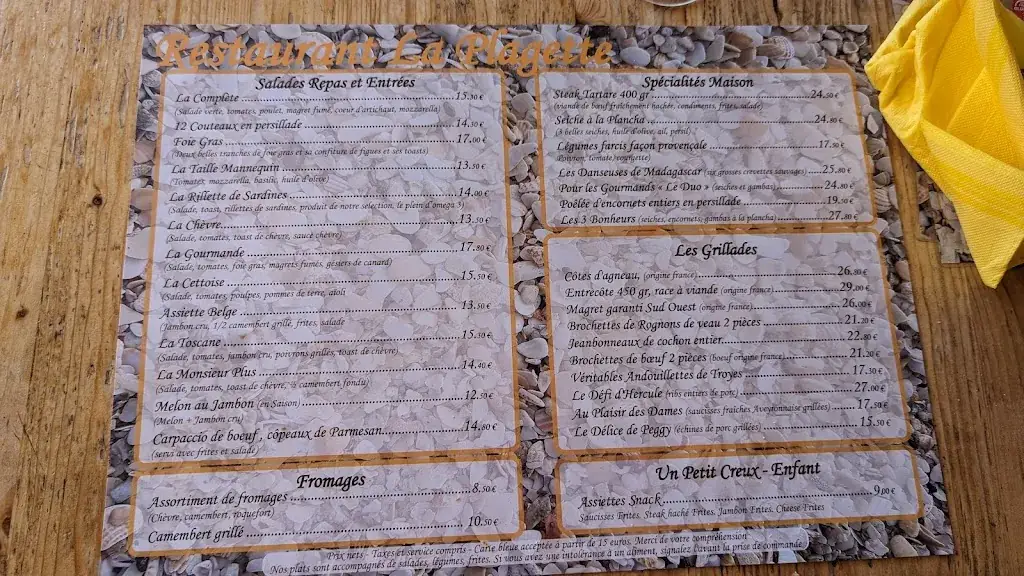 Restaurant La Plagette
Salades Repas et Entrées
La Complète 15.30 €
(Salade verte, tomates, poulet, magret fumé, coeur d'artichaut, mozzarella)
12 Couteaux en persillade 14.50 €
Foie Gras 17.00 €
(Deux belles tranches de foie gras et sa confiture de figues et ses toasts)
La Taille Mannequin 13.50 €
(Tomates, mozzarella, basilic, huile d'olive)
La Rillette de Sardines 14.00 €
(Salade, toast, rillettes de sardines, produit de notre sélection, le plein d'omega 3)
La Chèvre 13.50 €
(Salade, tomates, toast de chèvre, sauce chèvre)
La Gourmande 17.80 €
(Salade, tomates, foie gras, magrets fumés, gésiers de canard)
La Cettoise 15.50 €
(Salade, tomates, poulpes, pommes de terre, aïoli
Assiette Belge 13.50 €
(Jambon cru, 1/2 camembert grillé, frites, salade
La Toscane 15.30 €
(Salade, tomates, jambon cru, poivrons grillés, toast de chèvre)
La Monsieur Plus 14.40 €
(Salade, tomates, toast de chèvre, ½ camembert fondu)
Melon au Jambon (en Saison) 12.50 €
(Melon + Jambon cru)
Carpaccio de boeuf , côpeaux de Parmesan 14.80 €
(servi avec frites et salade)
Fromages
Assortiment de fromages 8.50 €
(Chèvre, camembert, roquefort)
Camembert grillé 10.50 €
Spécialités Maison
Steak Tartare 400 gr 24.50 €
(viande de bœuf fraîchement haché, condiments, frites, salade)
Seiche à la Plancha 24.80 €
(3 belles seiches, huile d'olive, ail, persil)
Légumes farcis façon provençale 17.50 €
(Poivron, tomate, courgette)
Les Danseuses de Madagascar (six grosses crevettes sauvages) 25.80 €
Pour les Gourmands « Le Duo » (seiches et gambas) 24.80 €
Poêlée d'encornets entiers en persillade 19.50 €
Les 3 Bonheurs (seiches, encornets, gambas à la plancha) 27.80 €
Les Grillades
Côtes d'agneau, (origine france) 26.80 €
Entrecôte 450 gr, race à viande (origine france) 29.00 €
Magret garanti Sud Ouest (origine france) 26.00 €
Brochettes de Rognons de veau 2 pièces 21.20 €
Jeanbonneaux de cochon entier 22.80 €
Brochettes de bœuf 2 pièces (boeuf origine france) 21.20 €
Véritables Andouillettes de Troyes 17.30 €
Le Défi d'Hercule (ribs entiers de porc) 27.00 €
Au Plaisir des Dames (saucisses fraîches Aveyronnaise grillées) 17.50 €
Le Délice de Peggy (échines de porc grillées) 15.50 €
Un Petit Creux - Enfant
Assiettes Snack 9.00 €
Saucisses Frites, Steak haché Frites, Jambon Frites, Cheese Frites
Prix nets - Taxes et service compris - Carte bleue acceptée à partir de 15 euros. Merci de votre compréhension
Nos plats sont accompagnés de salades, légumes, frites. Si vous avez une intolérance à un aliment, signalez l'avant la prise de commande